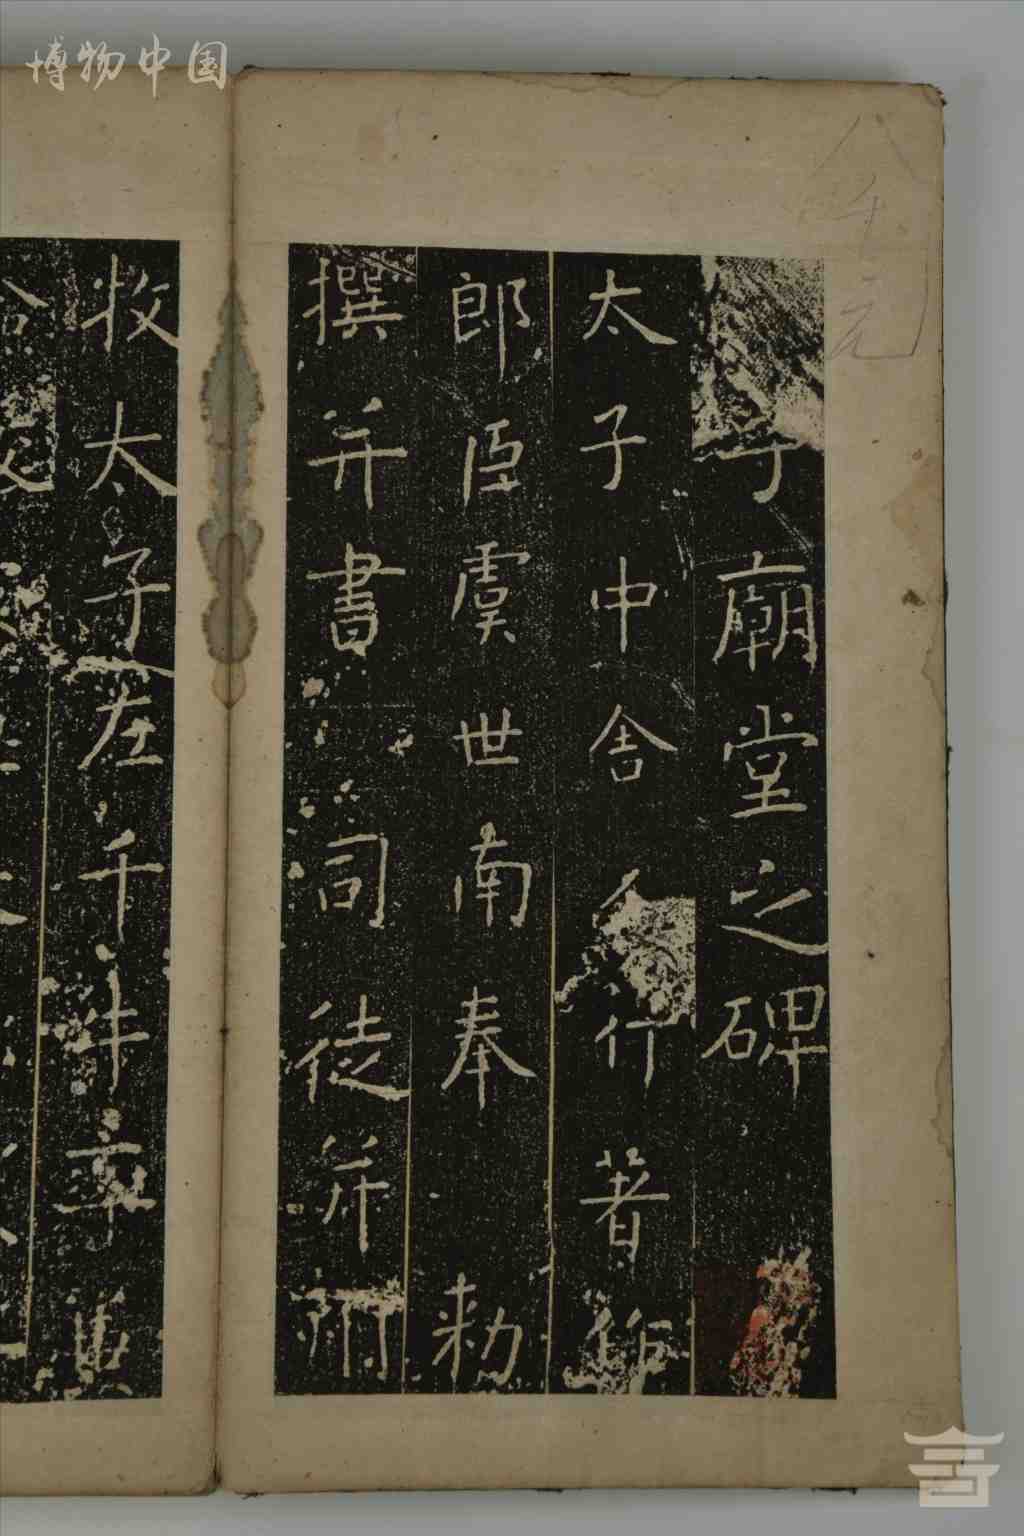 博物中国
子廟堂之碑
太子中舍人行著作
郎臣虞世南奉 勅
撰并書 司徒并州
牧太子左千牛率
八千元